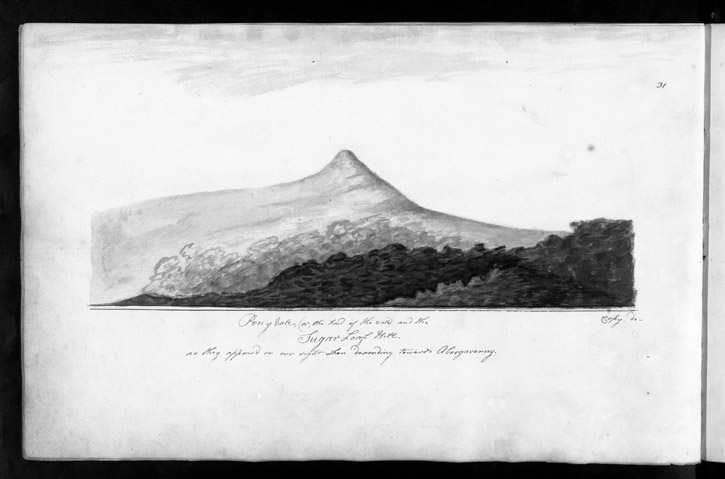 31
Pen y Vale, (or, the head of the vale) and the
Sugar Loaf Hill.
as they appeard on our right when descending towards Abergavenny.